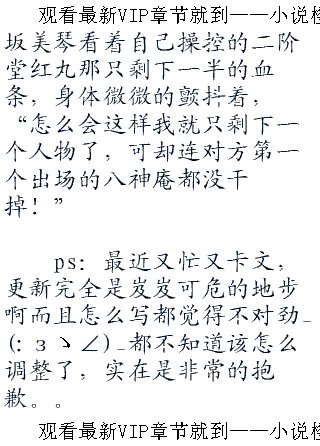 观看最新VIP章节就到——小说检
坂美琴看着自己操控的二阶
堂红丸那只剩下一半的血
条，身体微微的颤抖着，
“怎么会这样我就只剩下一
个人物了，可却连对方第一
个出场的八神庵都没干
掉！”
ps：最近又忙又卡文，
更新完全是岌岌可危的地步
啊而且怎么写都觉得不对劲_
(:зヽ∠)_都不知道该怎么
调整了，实在是非常的抱
歉。。
观看最新VIP章节就到——小说检